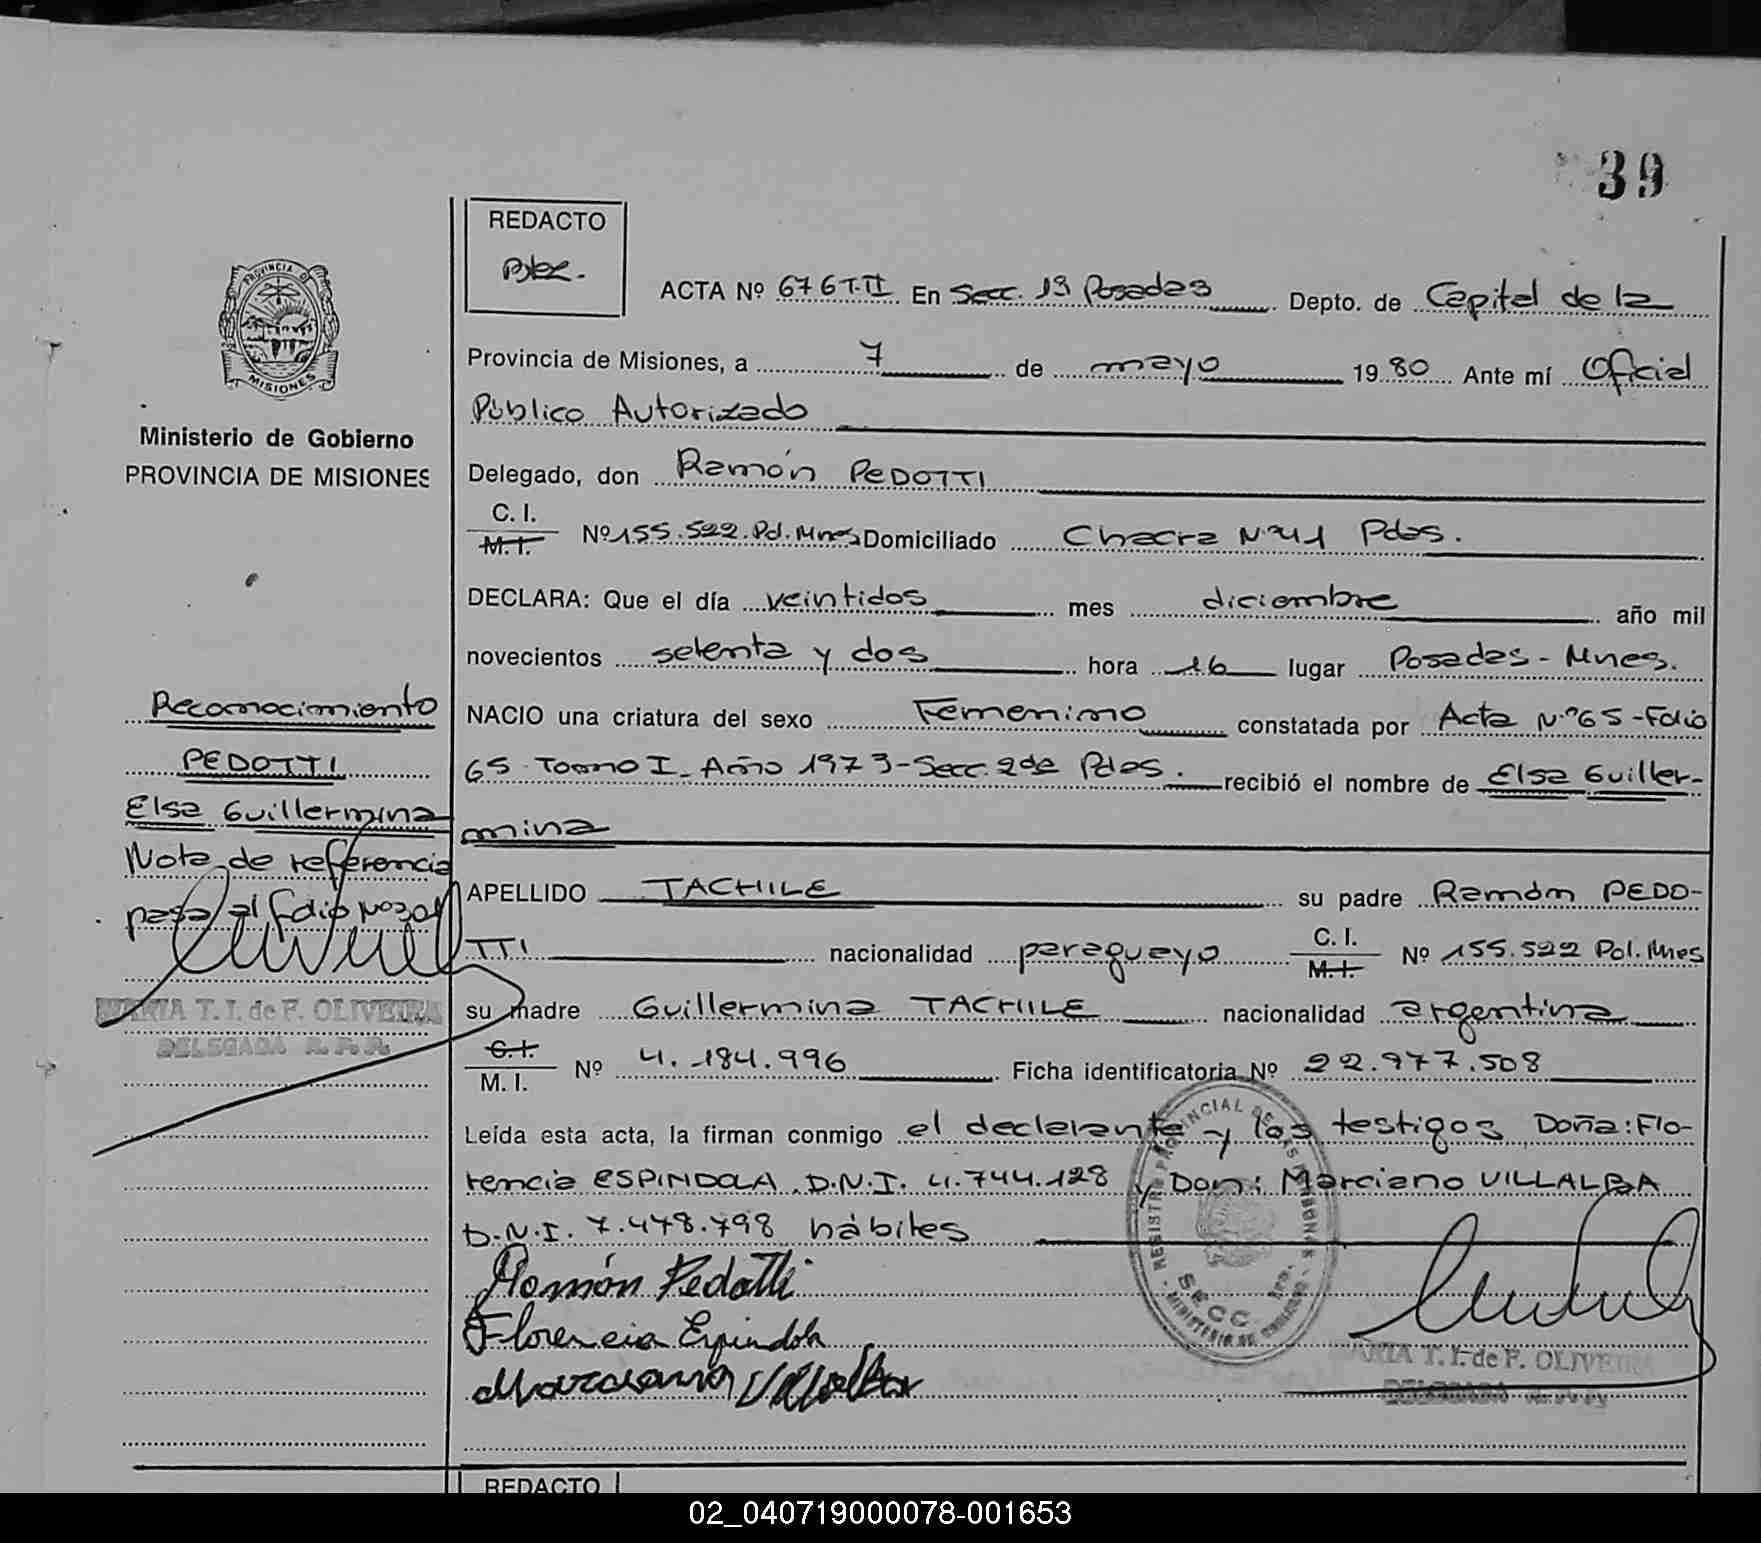 39
REDACTO
PROVINCIA DE
MISIONES
ACTA Nº 676 T.II En Secc. 13 Posadas Depto. de Capital de la
Provincia de Misiones, a 7 de mayo 1980 Ante mí Oficial
Público Autorizado
Ministerio de Gobierno
PROVINCIA DE MISIONES
Delegado, don Ramón PEDOTTI
C. I.
M. I. Nº 155.522 Pol. Mnes Domiciliado Chacra Nº 41 Pdas.
DECLARA: Que el día veintidos mes diciembre año mil
novecientos setenta y dos hora 16 lugar Posadas - Mnes.
NACIO una criatura del sexo Femenino constatada por Acta Nº 65 - Folio
65 Tomo I - Año 1973 - Secc. 2da Pdas. recibió el nombre de Elsa Guiller-
mina
Reconocimiento
PEDOTTI
Elsa Guillermina
Nota de referencia
pasa al folio Nº 201
MARIA T. I. de F. OLIVEIRA
DELEGADA R. P. P.
APELLIDO TACHILE su padre Ramón PEDO-
TTI nacionalidad paraguayo C. I.
M. I. Nº 155.522 Pol. Mnes
su madre Guillermina TACHILE nacionalidad argentina
C. I.
M. I. Nº 4.184.996 Ficha identificatoria Nº 22.977.508
Leída esta acta, la firman conmigo el declarante y los testigos Doña: Flo-
rencia ESPINDOLA D.N.I. 4.744.128 y Don: Marciano VILLALBA
D.N.I. 7.478.798 hábiles
Ramón Pedotti
Florencia Espindola
Marciano Villalba
REGISTRO PROVINCIAL DE LAS PERSONAS
SECC
MINISTERIO DE GOBIERNO
MARIA T. I. de F. OLIVEIRA
DELEGADA
REDACTO
02_040719000078-001653